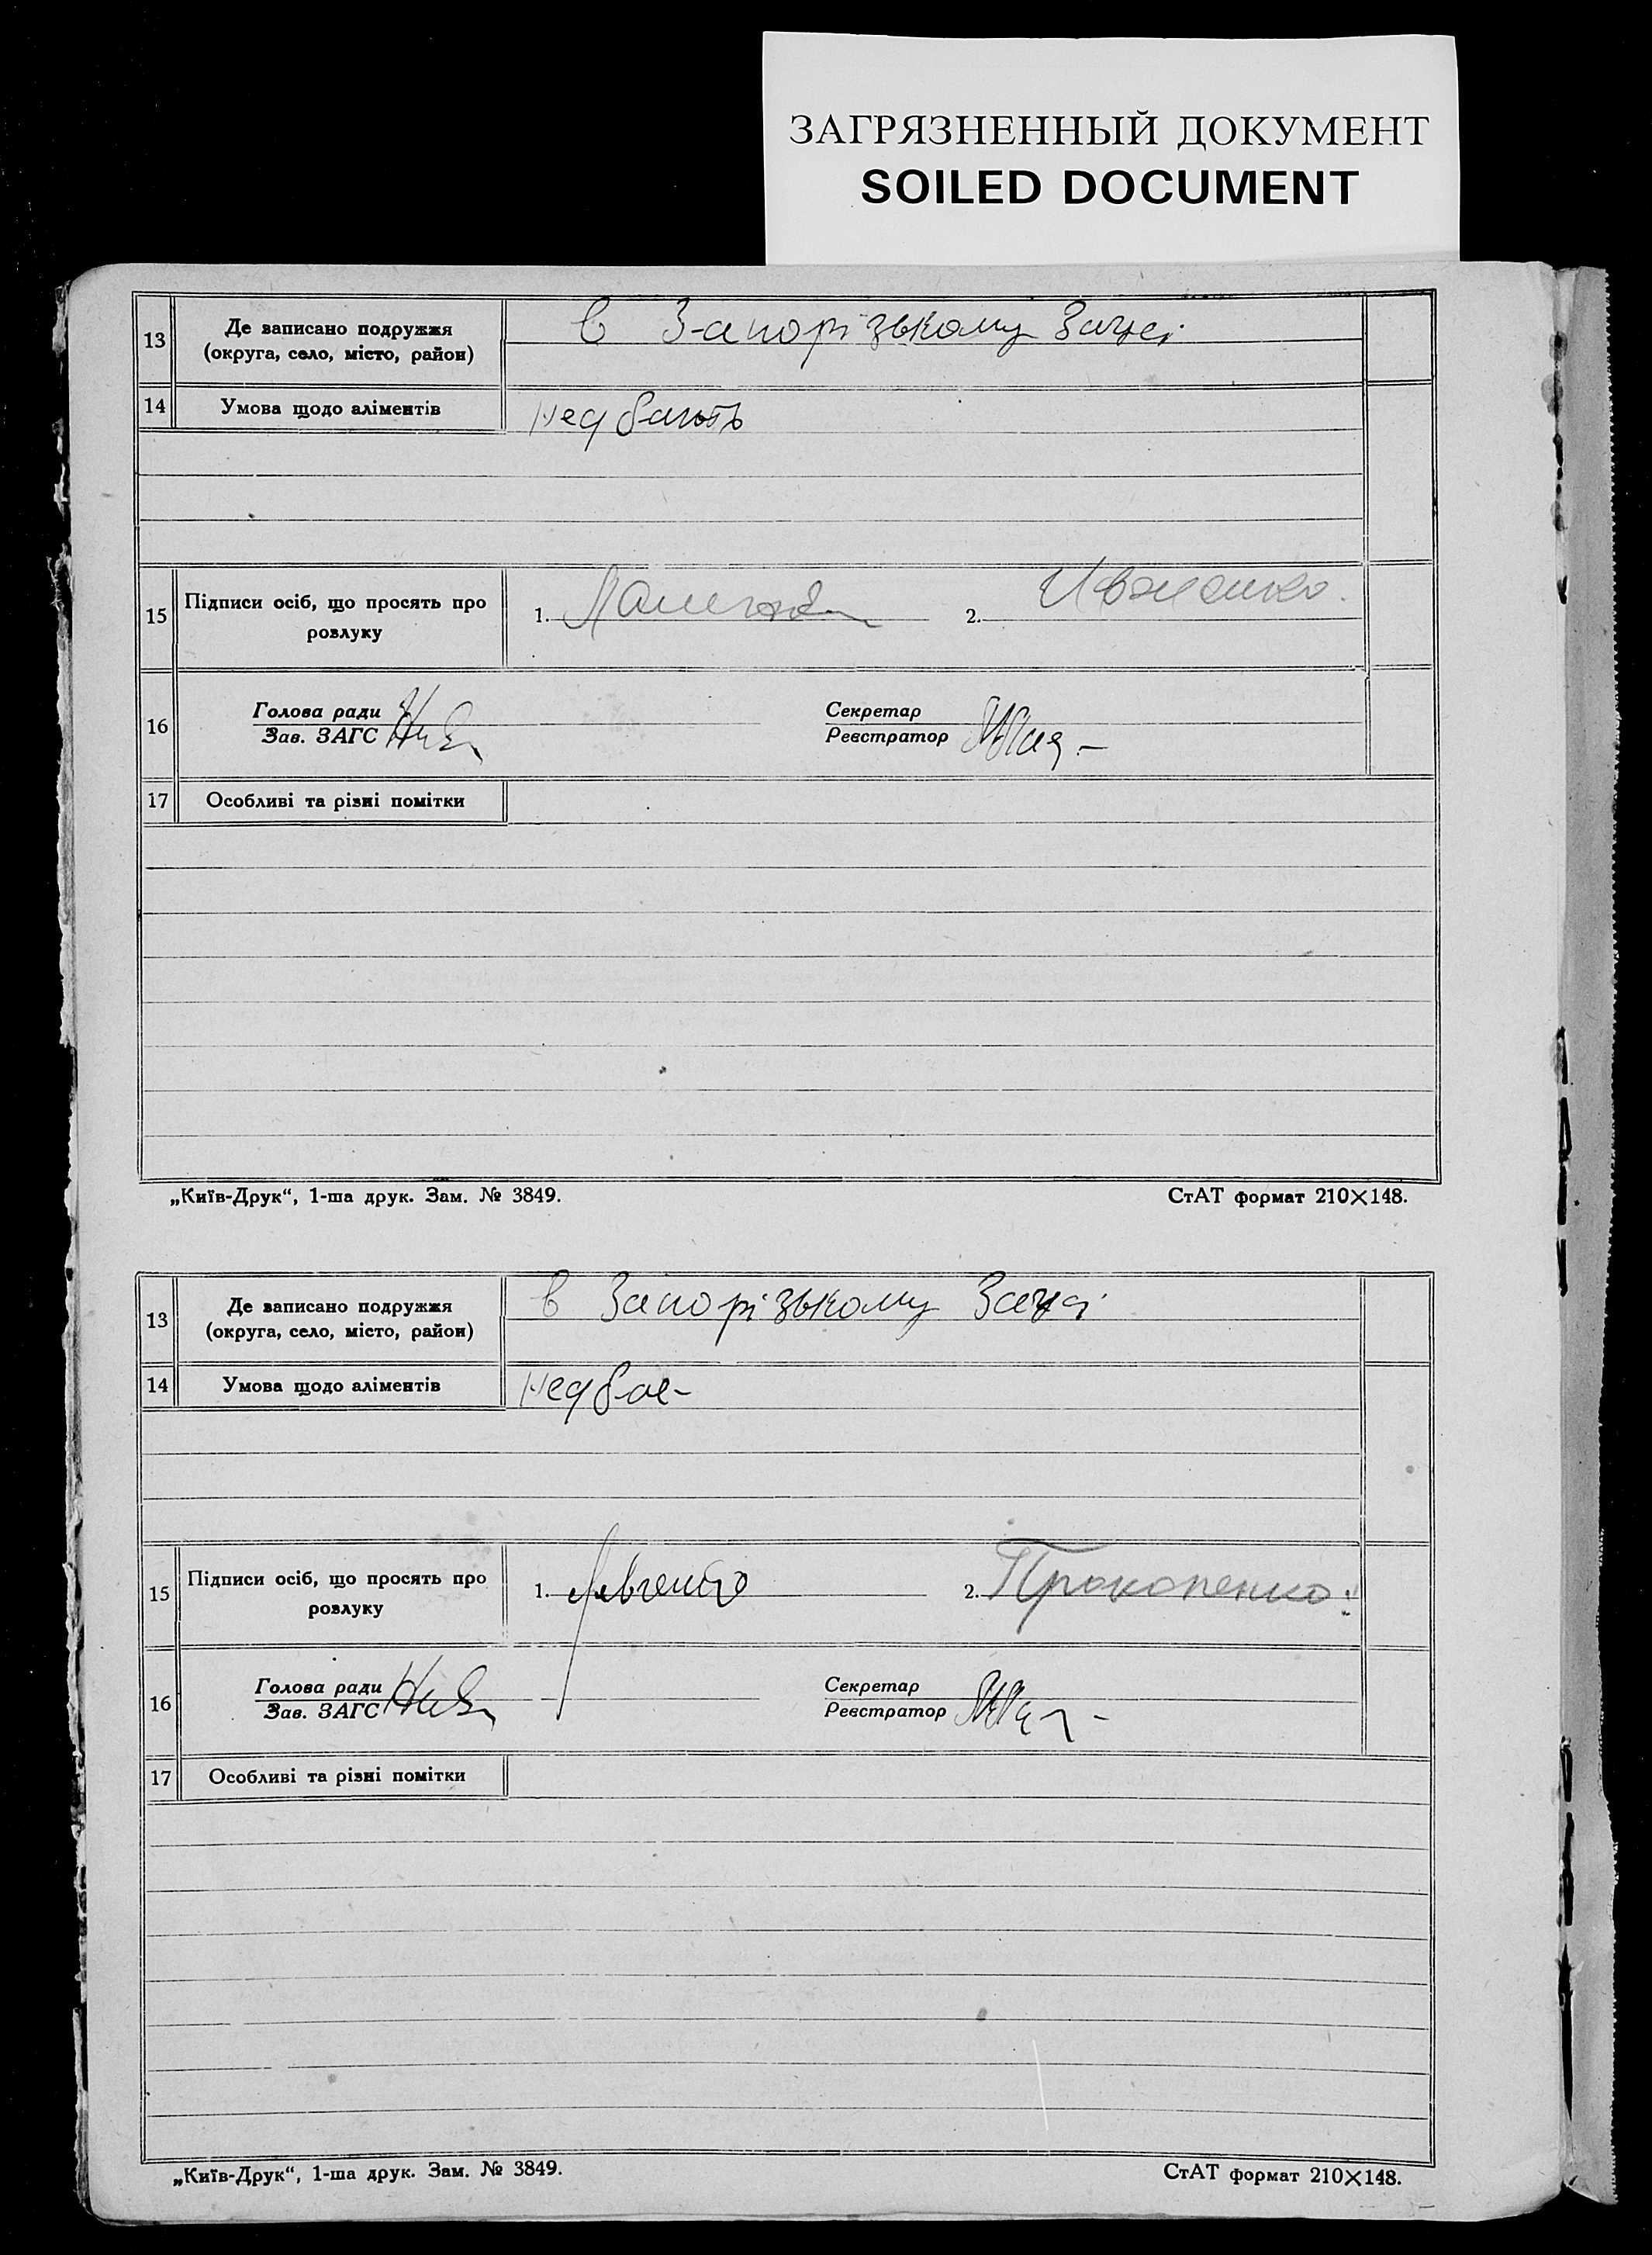 ЗАГРЯЗНЕННЫЙ ДОКУМЕНТ
SOILED DOCUMENT
13 Де записано подружжя
(округа, село, місто, район)
в Запорізькому Загсі
14 Умова щодо аліментів
недбають
15 Підписи осіб, що просять про
розлуку
1. 2. Иваненко.
16 Голова ради
Зав. ЗАГС
Секретар
Реєстратор
17 Особливі та різні помітки
„Київ-Друк“, 1-ша друк. Зам. № 3849. СтАТ формат 210×148.
13 Де записано подружжя
(округа, село, місто, район)
в Запорізькому Загсі
14 Умова щодо аліментів
недбає-
15 Підписи осіб, що просять про
розлуку
1. 2. Прокопенко
16 Голова ради
Зав. ЗАГС
Секретар
Реєстратор
17 Особливі та різні помітки
„Київ-Друк“, 1-ша друк. Зам. № 3849. СтАТ формат 210×148.